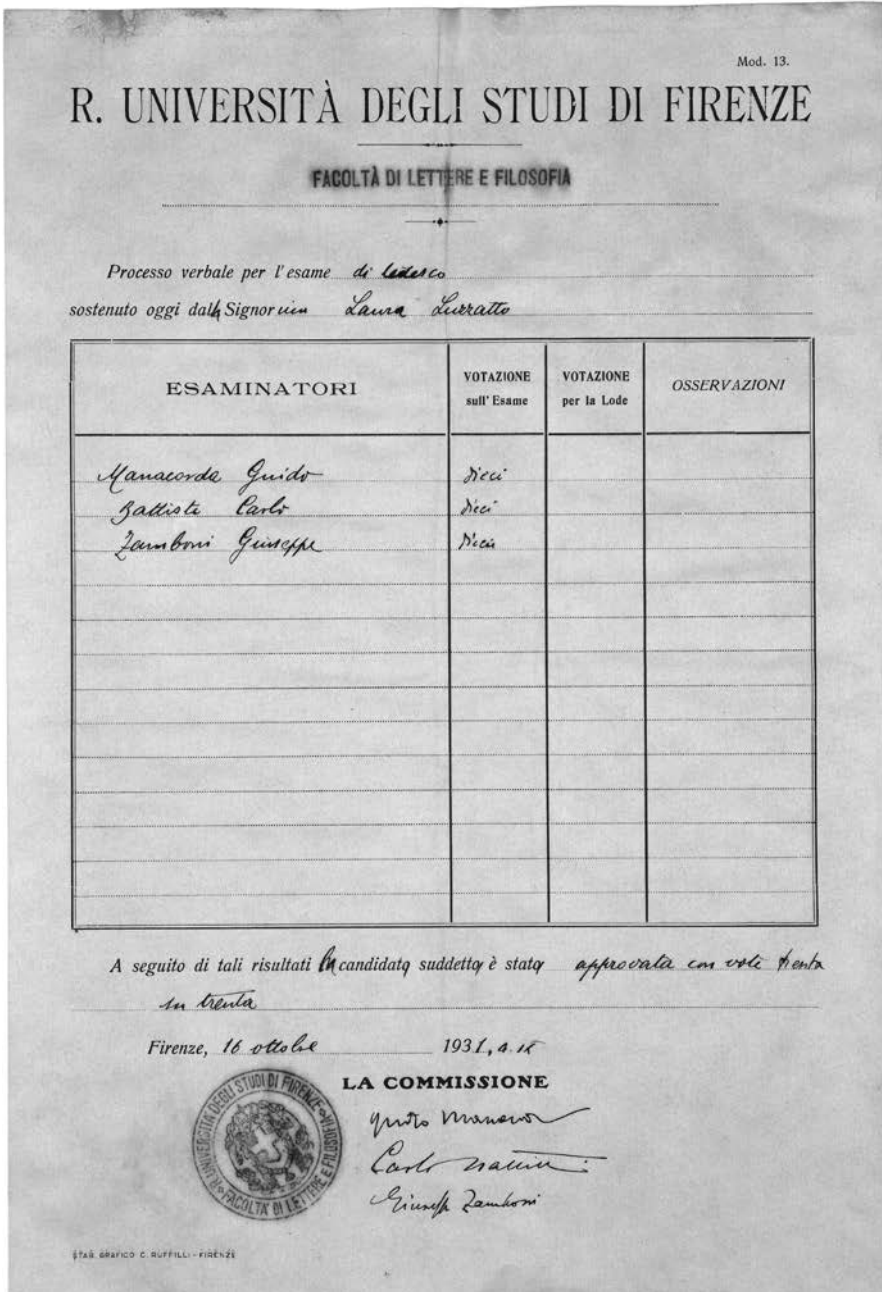 Mod. 13.
R. UNIVERSITÀ DEGLI STUDI DI FIRENZE
FACOLTÀ DI LETTERE E FILOSOFIA
Processo verbale per l'esame di tedesco
sostenuto oggi dalla Signorina Laura Luzzatto
ESAMINATORI
VOTAZIONE sull'Esame
VOTAZIONE per la Lode
OSSERVAZIONI
Manacorda Guido dieci
Battisti Carlo dieci
Zamboni Giuseppe dieci
A seguito di tali risultati la candidata suddetta è stata approvata con voti trenta
su trenta
Firenze, 16 ottobre 1931, a. IX
LA COMMISSIONE
Guido Manacorda
Carlo Battisti
Giuseppe Zamboni
R. UNIVERSITÀ DEGLI STUDI DI FIRENZE
FACOLTÀ DI LETTERE E FILOSOFIA
STAB. GRAFICO C. RUFFILLI - FIRENZE